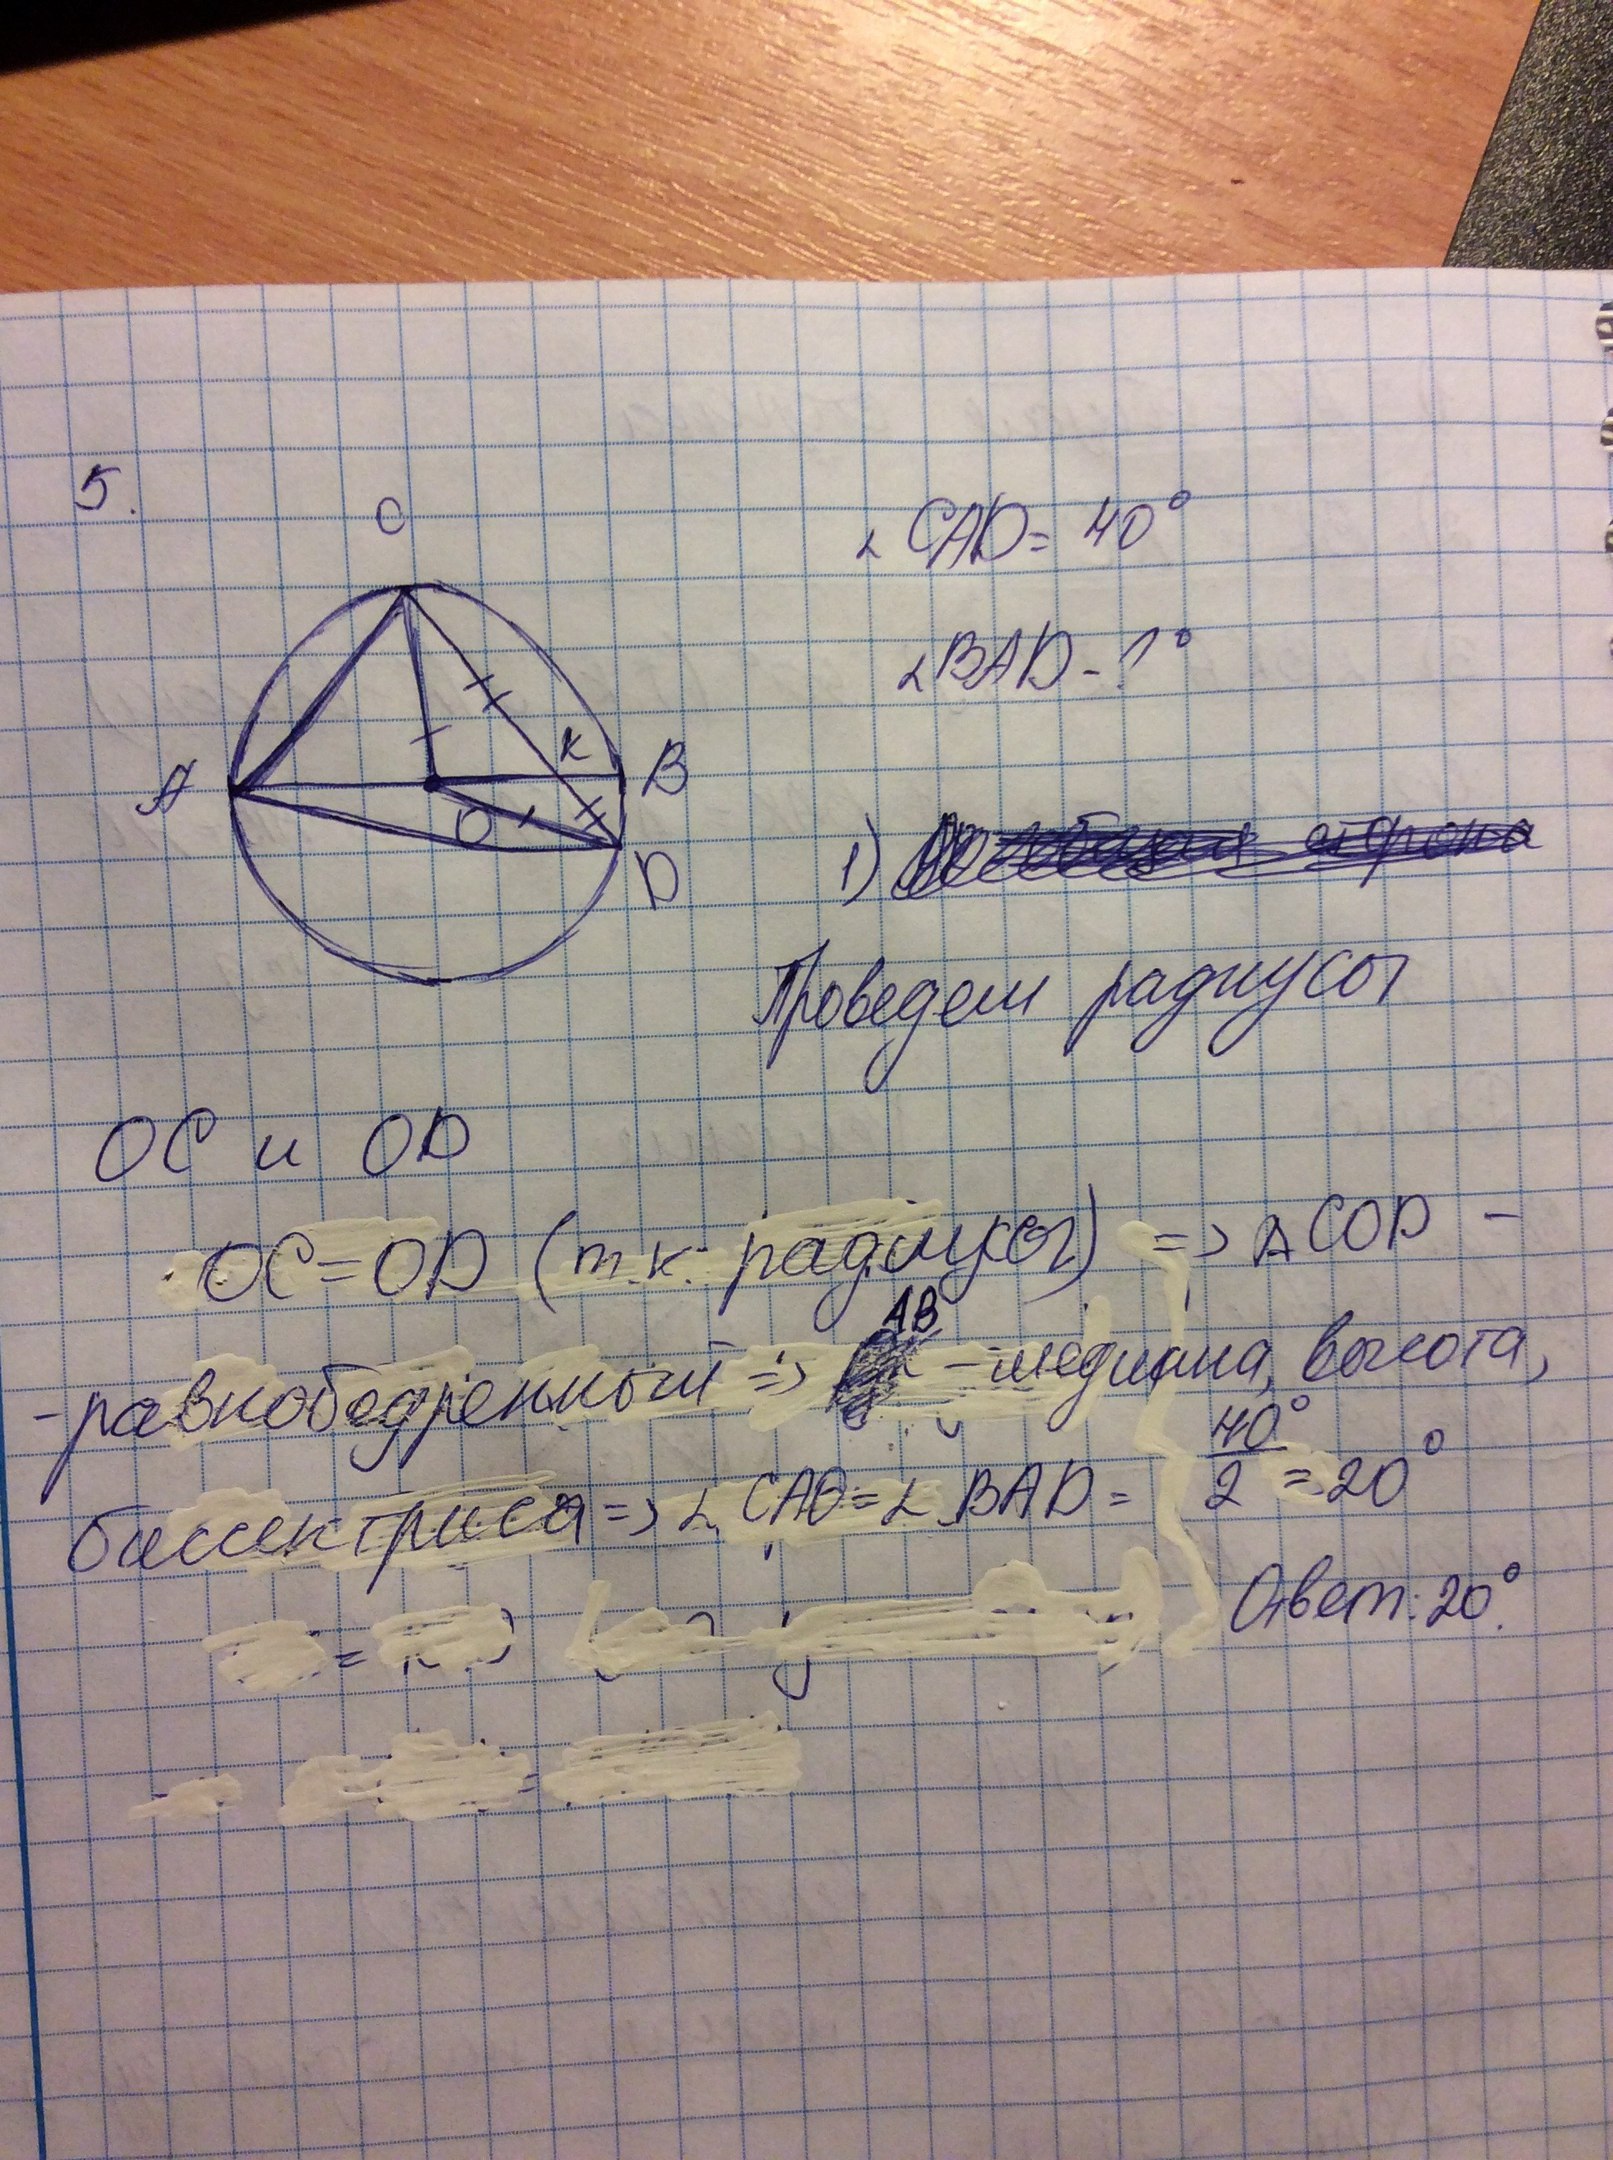 5.
C
∠ CAD = 40°
∠BAD - ?°
K
A
B
O
D
1)
Проведем радиусы
OC и OD
OC = OD (т.к. радиусы) => △ COD -
AB
- равнобедренный => - медиана, высота,
биссектриса => ∠ CAO = ∠ BAD = 40°/2 = 20°
Ответ: 20°.